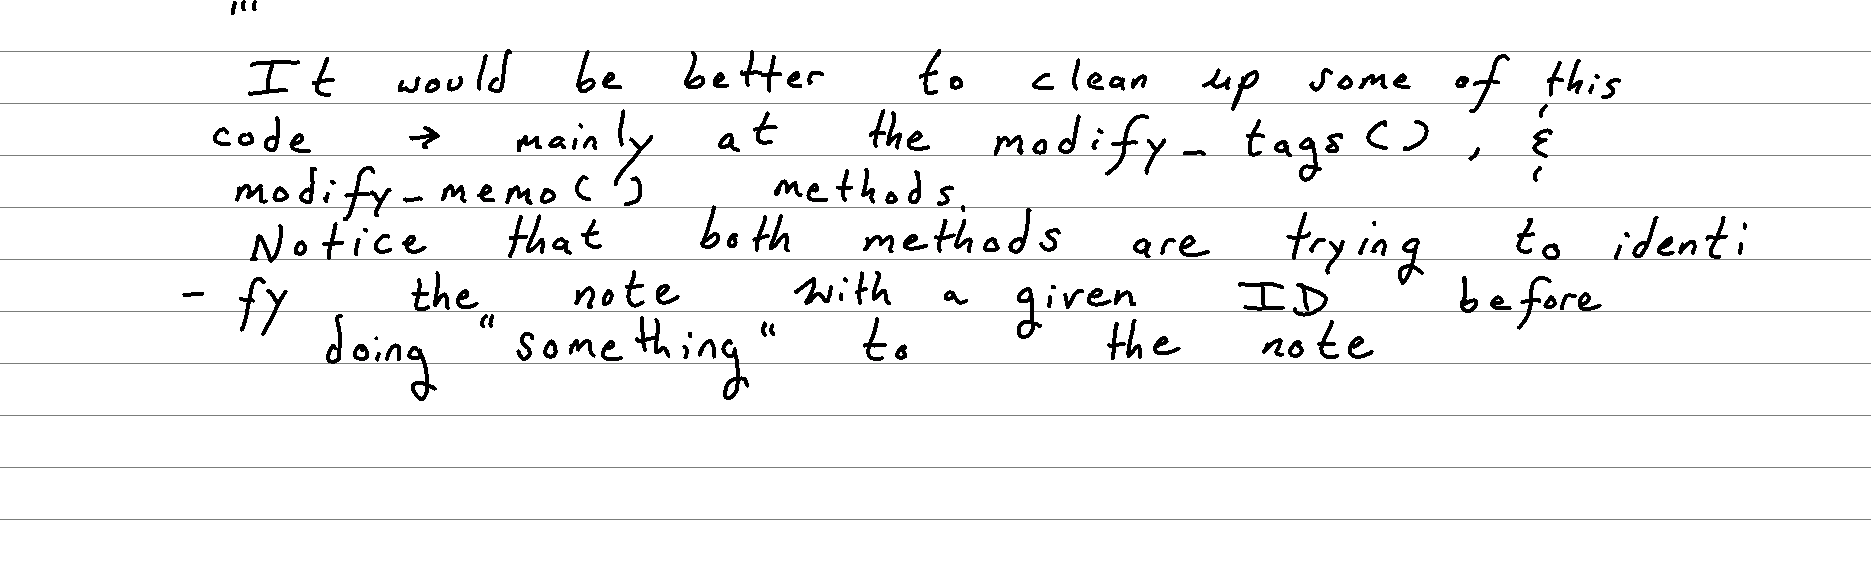 '''
It would be better to clean up some of this
code → mainly at the modify_tags(), &
modify_memo() methods.
Notice that both methods are trying to identi
- fy the note with a given ID before
doing "something" to the note